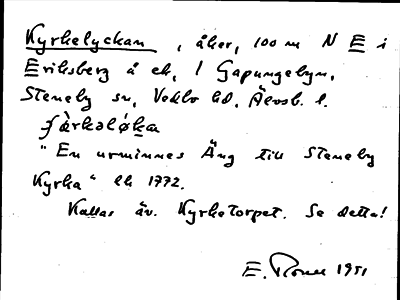 Kyrkelyckan, åker, 100 m N E i
Eriksberg å ek, / Gapungebyn,
Steneby sn, Vedbo hd, Älvsb. l.
"En urminnes Äng till Steneby
Kyrka" lh 1772.
Kallas äv. Kyrketorpet. Se detta!
E. 1951